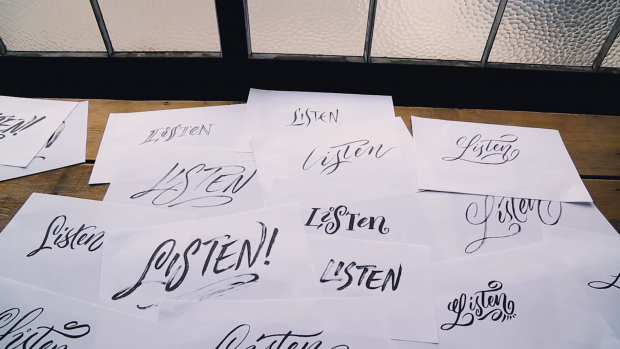 LISTEN
LISTEN
Listen
Listen
LISTEN
Listen
Listen
Listen
LISTEN!
LISTEN
Listen
Listen
Listen